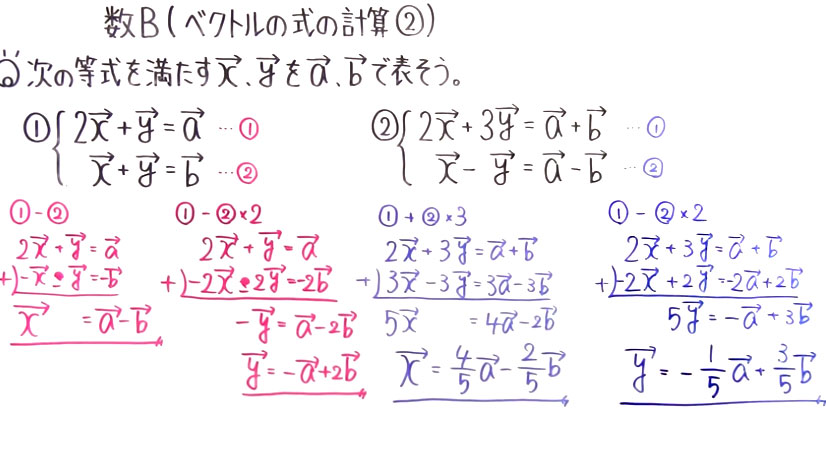 数B(ベクトルの式の計算②)
Q 次の等式を満たすx⃗、y⃗をa⃗、b⃗で表そう。
① { 2x⃗+y⃗=a⃗ …①
x⃗+y⃗=b⃗ …②
② { 2x⃗+3y⃗=a⃗+b⃗ …①
x⃗-y⃗=a⃗-b⃗ …②
①-②
2x⃗+y⃗=a⃗
+)-x⃗-y⃗=-b⃗
x⃗ =a⃗-b⃗
①-②×2
2x⃗+y⃗=a⃗
+)-2x⃗-2y⃗=-2b⃗
-y⃗=a⃗-2b⃗
y⃗=-a⃗+2b⃗
①+②×3
2x⃗+3y⃗=a⃗+b⃗
+)3x⃗-3y⃗=3a⃗-3b⃗
5x⃗ =4a⃗-2b⃗
x⃗=4/5a⃗-2/5b⃗
①-②×2
2x⃗+3y⃗=a⃗+b⃗
+)-2x⃗+2y⃗=-2a⃗+2b⃗
5y⃗=-a⃗+3b⃗
y⃗=-1/5a⃗+3/5b⃗